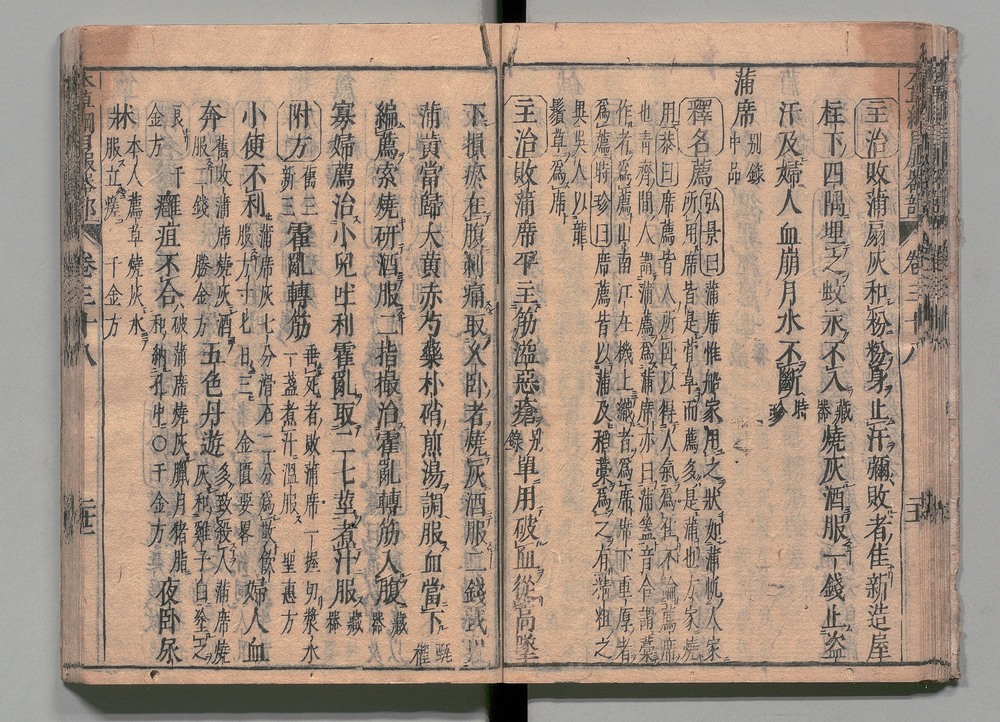 主治敗蒲扇灰和粉粉身止汗彌敗者佳新造屋
柱下四隅埋之蚊永不入藏器燒灰酒服一錢止盜
汗及婦人血崩月水不斷時珍
蒲席別錄中品
釋名薦弘景曰蒲席惟船家用之狀如蒲帆人家
所用席皆是菅草而薦多是蒲也方家燒
用恭曰席薦皆人所臥以得人氣為佳不論薦席
也青齊間人謂蒲薦為蒲席亦曰蒲蓋音合謂藁
作者為薦山南江左機上織者為席席下重厚者
為薦時珍曰席薦皆以蒲及稻藁為之有精粗之
異吳人以龍
鬚草為席
主治敗蒲席平主筋溢惡瘡別錄單用破血從高墜
下損瘀在腹刺痛取久臥者燒灰酒服二錢或以
蒲黄當歸大黄赤芍藥朴硝煎湯調服血當下甄權
編薦索燒研酒服二指撮治霍亂轉筋入腹藏器
寡婦薦治小兒吐利霍亂取二七莖煮汁服藏器
附方舊三新三霍亂轉筋垂死者敗蒲席一握切漿水一盞煮汁溫服 聖惠方
小便不利蒲席灰七分滑石二分為散飲服方寸匕日三 金匱要畧婦人血
奔舊敗蒲席燒灰酒服二錢 勝金方五色丹遊多致殺人蒲席燒灰和雞子白塗之
良 千金方癰疽不合破蒲席燒灰臘月猪脂和納孔中〇千金方夜臥尿
牀本人薦草燒灰水服立瘥 千金方
卷三十八